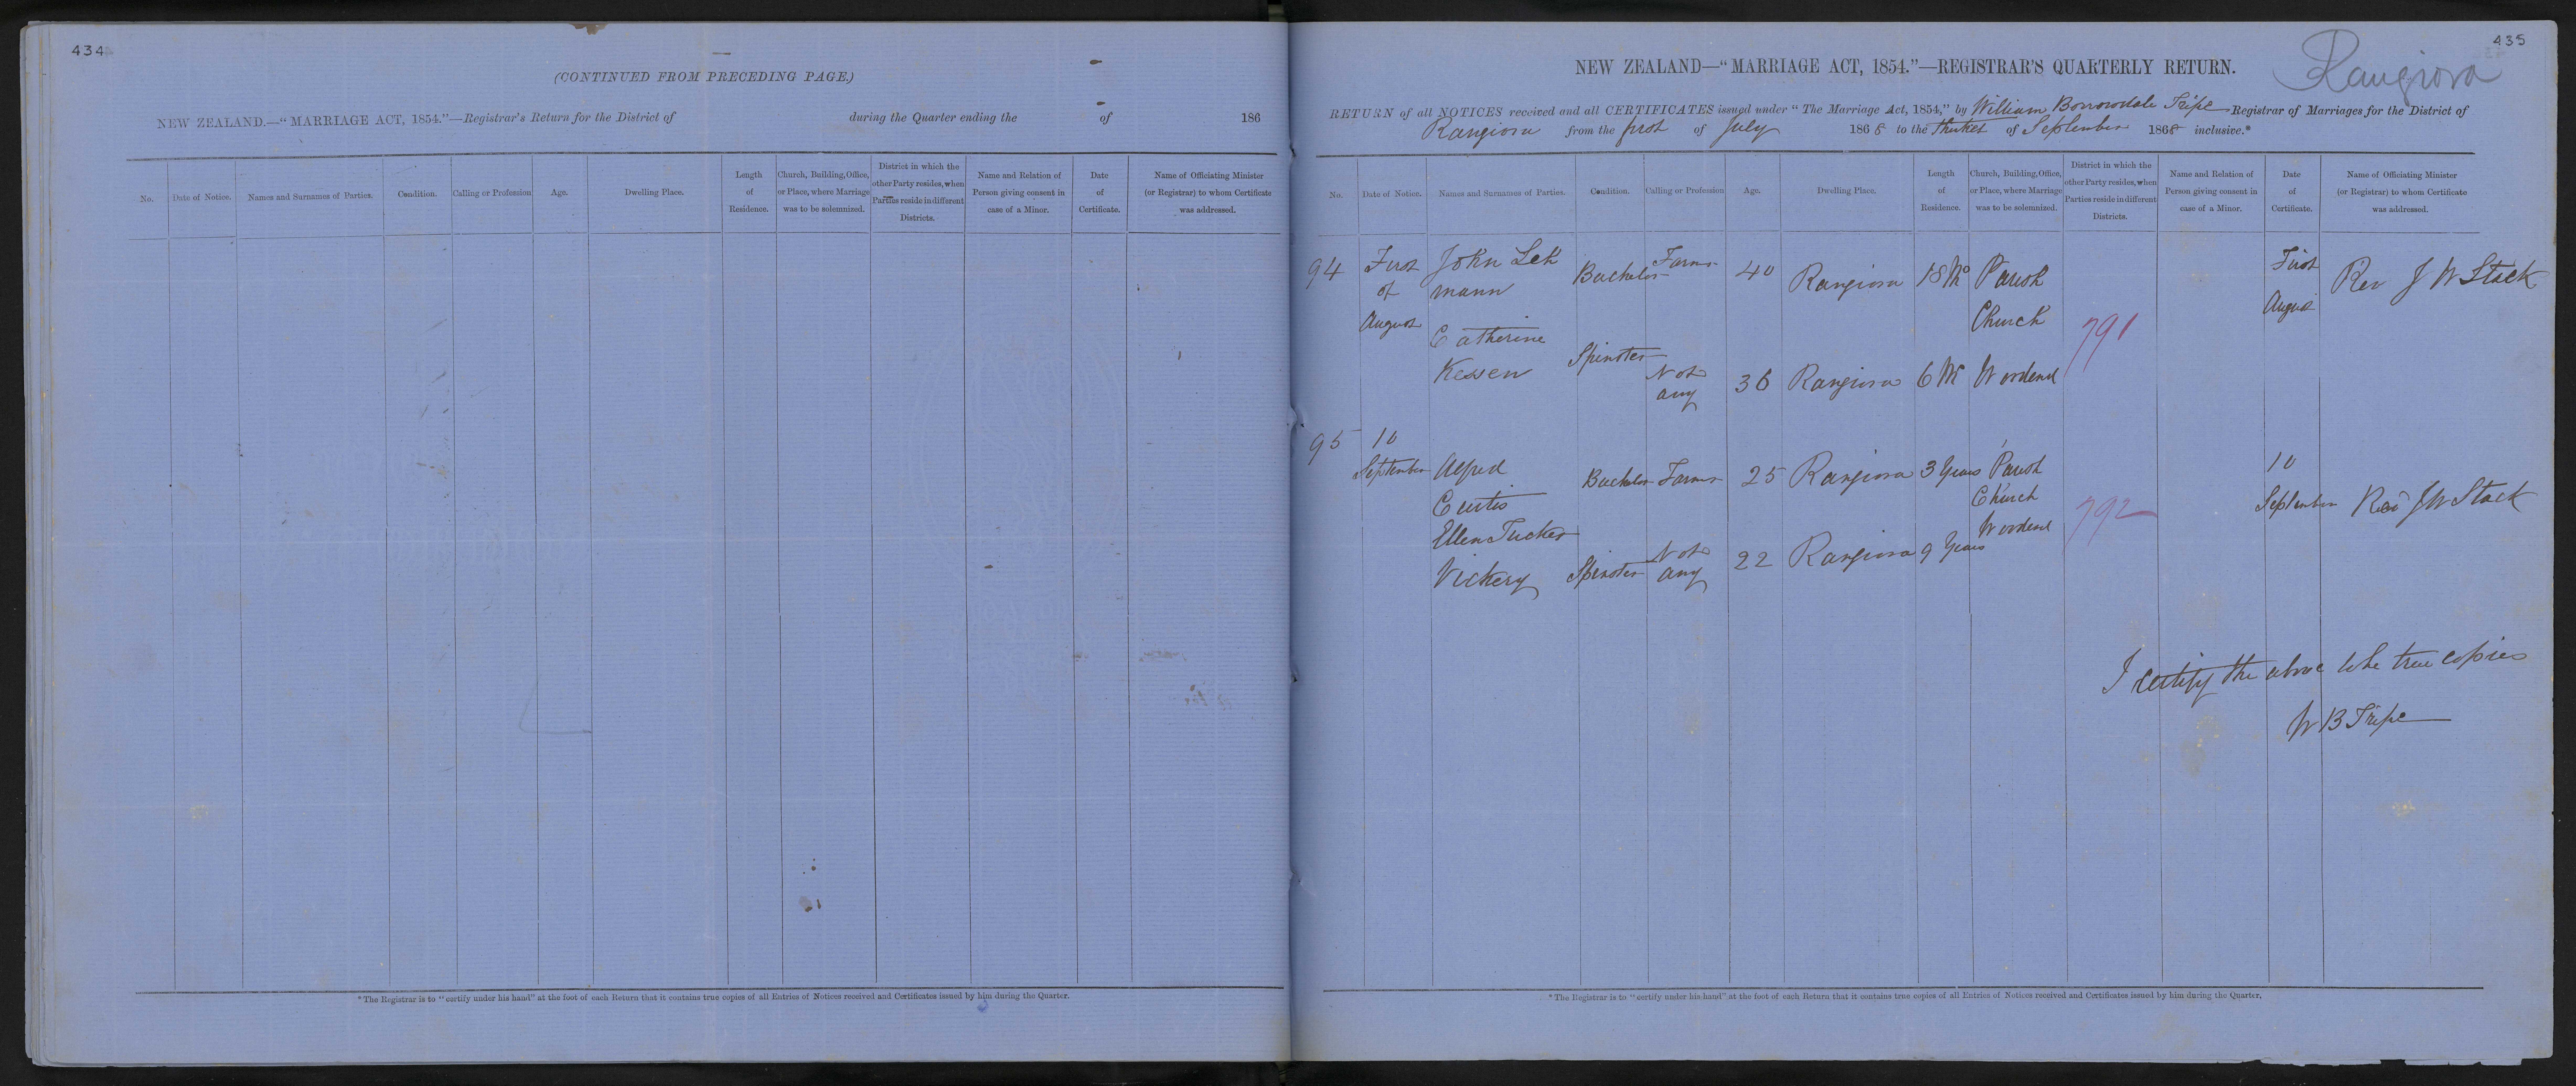 434
(CONTINUED FROM PRECEDING PAGE.)
NEW ZEALAND.—"MARRIAGE ACT, 1854."—Registrar's Return for the District of during the Quarter ending the of 186
No. Date of Notice. Names and Surnames of Parties. Condition. Calling or Profession Age. Dwelling Place. Length of Residence. Church, Building, Office, or Place, where Marriage was to be solemnized. District in which the other Party resides, when Parties reside in different Districts. Name and Relation of Person giving consent in case of a Minor. Date of Certificate. Name of Officiating Minister (or Registrar) to whom Certificate was addressed.
*The Registrar is to "certify under his hand" at the foot of each Return that it contains true copies of all Entries of Notices received and Certificates issued by him during the Quarter.
435
Rangiora
NEW ZEALAND—"MARRIAGE ACT, 1854."—REGISTRAR'S QUARTERLY RETURN.
RETURN of all NOTICES received and all CERTIFICATES issued under "The Marriage Act, 1854," by William Borrowdale Tripe Registrar of Marriages for the District of
Rangiora from the first of July 1868 to the of September 1868 inclusive.*
No. Date of Notice. Names and Surnames of Parties. Condition. Calling or Profession Age. Dwelling Place. Length of Residence. Church, Building, Office, or Place, where Marriage was to be solemnized. District in which the other Party resides, when Parties reside in different Districts. Name and Relation of Person giving consent in case of a Minor. Date of Certificate. Name of Officiating Minister (or Registrar) to whom Certificate was addressed.
94 First John Leh Bachelor Farmer 40 Rangiora 18 Mo Parish First Rev J W Stack
of mann
August Church August
Catherine 791
Kessen Spinster Not any 36 Rangiora 6 M Woodend
95 10
September Alfred Bachelor Farmer 25 Rangiora 3 Years Parish 10
Curtis Church September Rev J W Stack
Ellen Tucker Woodend 792
Vickery Spinster Not any 22 Rangiora 9 Years
I certify the above to be true copies
W B Tripe
*The Registrar is to "certify under his hand" at the foot of each Return that it contains true copies of all Entries of Notices received and Certificates issued by him during the Quarter.